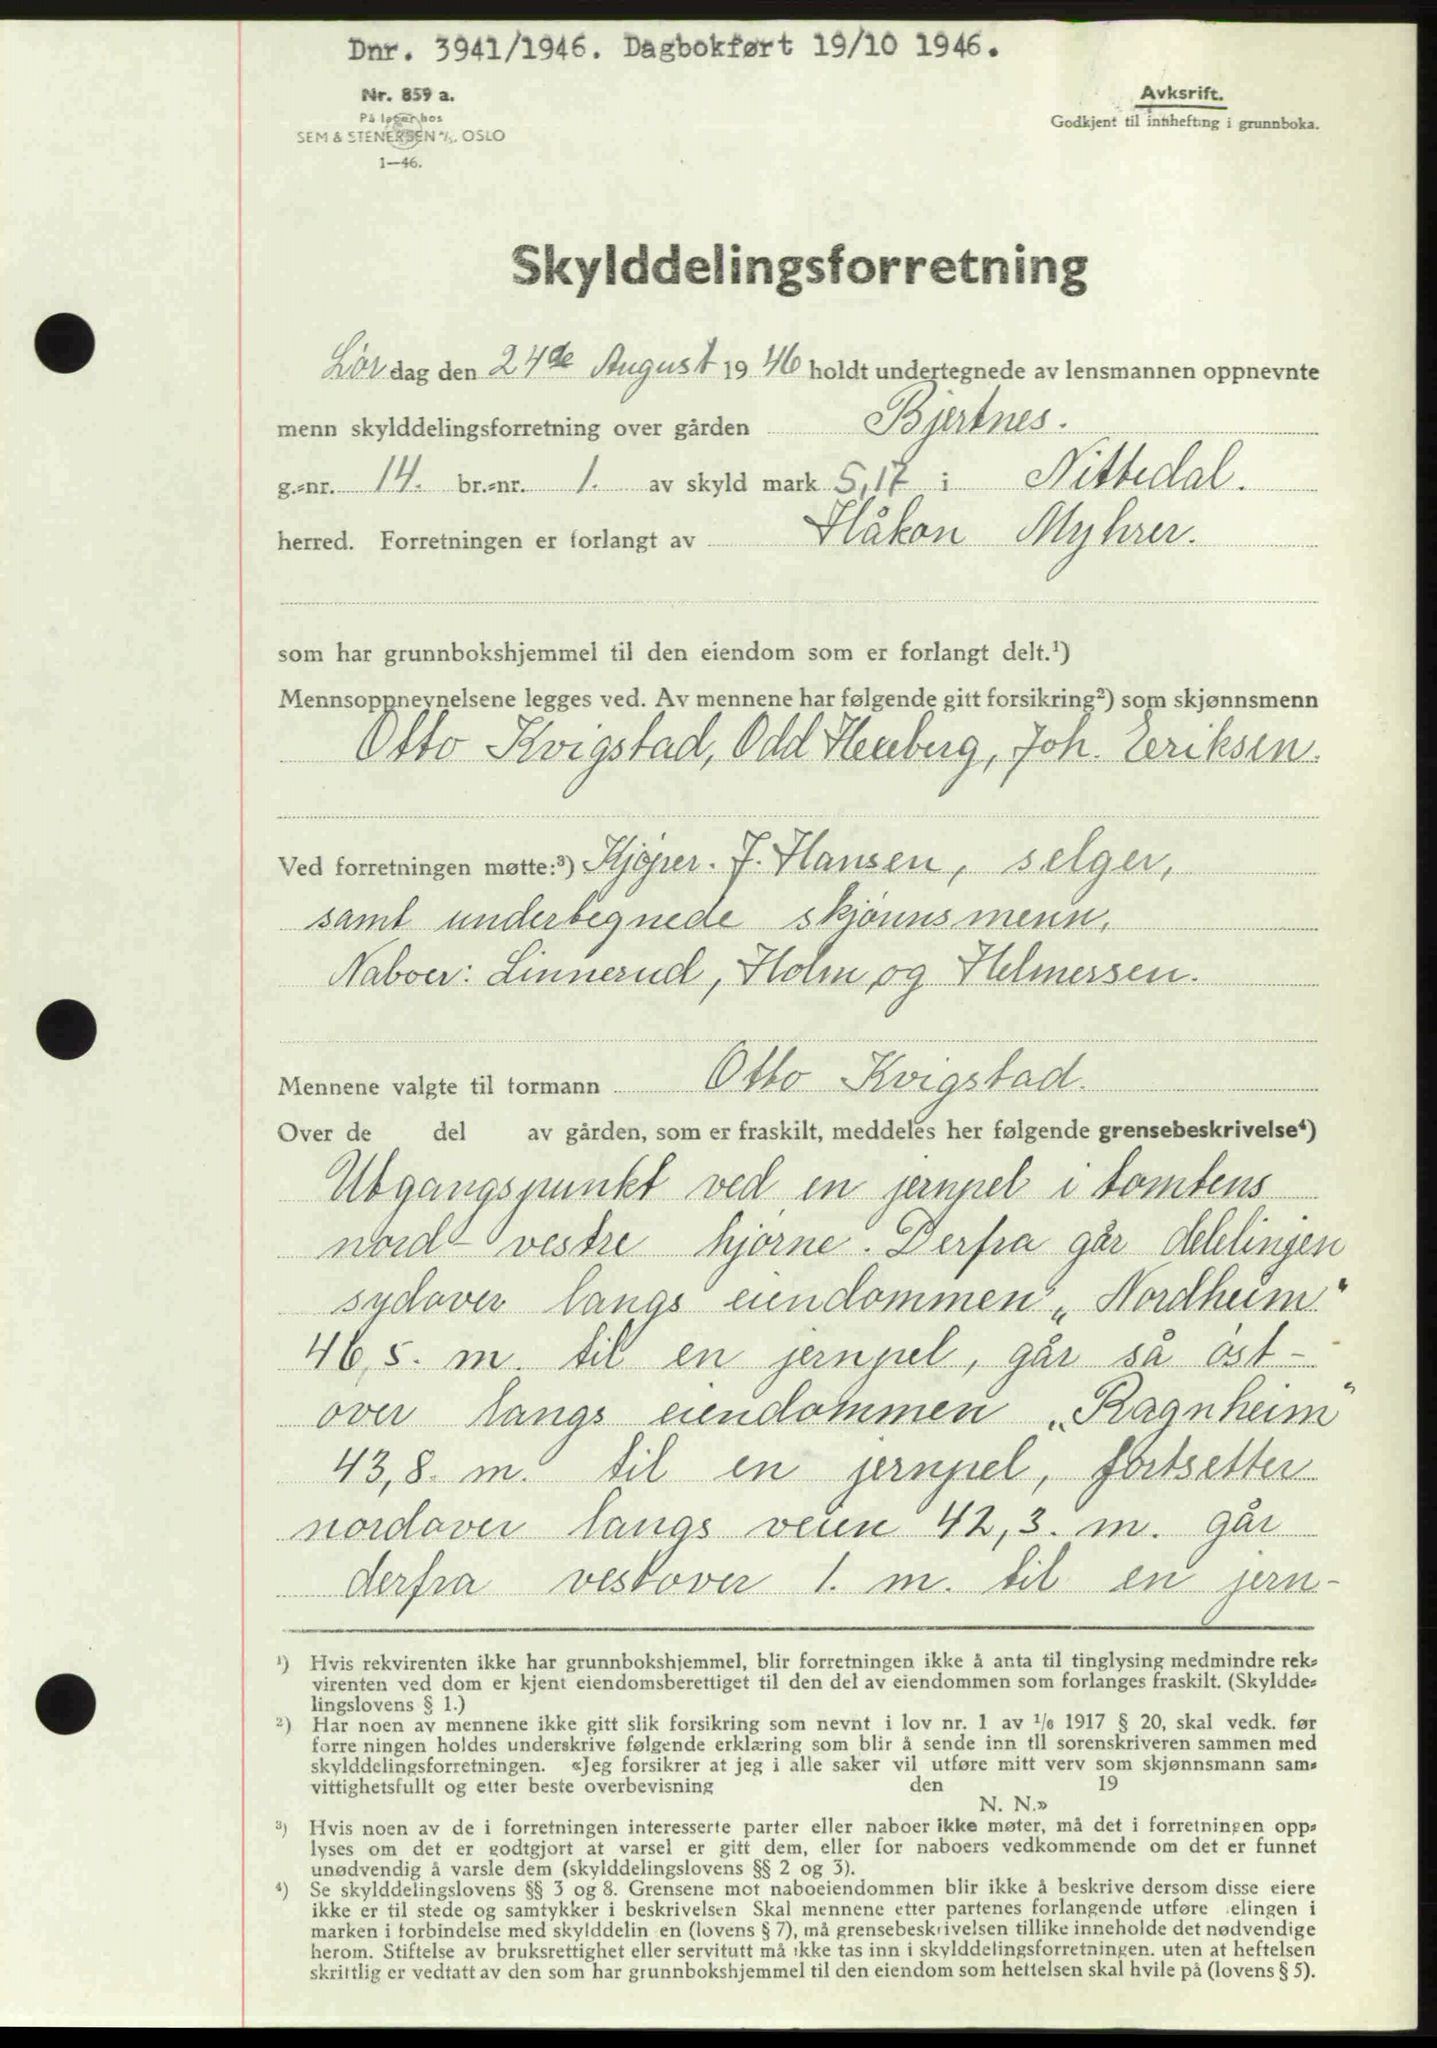 Dnr. 3941/1946. Dagbokført 19/10 1946.
Nr. 859 a.
På lager hos
SEM & STENERSEN A/S. OSLO
1—46.
Avksrift.
Godkjent til innhefting i grunnboka.
Skylddelingsforretning
Lør dag den 24de August 19 46 holdt undertegnede av lensmannen oppnevnte
menn skylddelingsforretning over gården Bjertnes.
g.-nr. 14. br.-nr. 1. av skyld mark 5,17 i Nittedal.
herred. Forretningen er forlangt av Håkon Myhrer.
som har grunnbokshjemmel til den eiendom som er forlangt delt.¹)
Mennsoppnevnelsene legges ved. Av mennene har følgende gitt forsikring²) som skjønnsmenn
Otto Kvigstad, Odd Haeberg, Joh. Eeriksen.
Ved forretningen møtte:³) Kjøper. J. Hansen, selger,
samt undertegnede skjønnsmenn.
Naboer: Linnerud, Holm og Helmersen.
Mennene valgte til formann Otto Kvigstad.
Over de del av gården, som er fraskilt, meddeles her følgende grensebeskrivelse⁴)
Utgangspunkt ved en jernpel i tomtens
nord-vestre hjørne. Derfra går delelinjen
sydover langs eiendommen „Nordheim"
46,5. m. til en jernpel, går så øst-
over langs eiendommen „Ragnheim"
43,8. m. til en jernpel, fortsetter
nordover langs veien 42,3. m. går
derfra vestover 1. m. til en jern-
¹) Hvis rekvirenten ikke har grunnbokshjemmel, blir forretningen ikke å anta til tinglysing medmindre rek-
virenten ved dom er kjent eiendomsberettiget til den del av eiendommen som forlanges fraskilt. (Skyldde-
lingslovens § 1.)
²) Har noen av mennene ikke gitt slik forsikring som nevnt i lov nr. 1 av 1/6 1917 § 20, skal vedk. før
forre ningen holdes underskrive følgende erklæring som blir å sende inn til sorenskriveren sammen med
skylddelingsforretningen. «Jeg forsikrer at jeg i alle saker vil utføre mitt verv som skjønnsmann sam-
vittighetsfullt og etter beste overbevisning den 19
N. N.»
³) Hvis noen av de i forretningen interesserte parter eller naboer ikke møter, må det i forretningen opp-
lyses om det er godtgjort at varsel er gitt dem, eller for naboers vedkommende om det er funnet
unødvendig å varsle dem (skylddelingslovens §§ 2 og 3).
⁴) Se skylddelingslovens §§ 3 og 8. Grensene mot naboeiendommen blir ikke å beskrive dersom disse eiere
ikke er til stede og samtykker i beskrivelsen Skal mennene etter partenes forlangende utføre elingen i
marken i forbindelse med skylddelin en (lovens § 7), må grensebeskrivelsen tillike inneholde det nødvendige
herom. Stiftelse av bruksrettighet eller servitutt må ikke tas inn i skylddelingsforretningen. uten at heftelsen
skriftlig er vedtatt av den som har grunnbokshjemmel til den eiendom som heftelsen skal hvile på (lovens § 5).